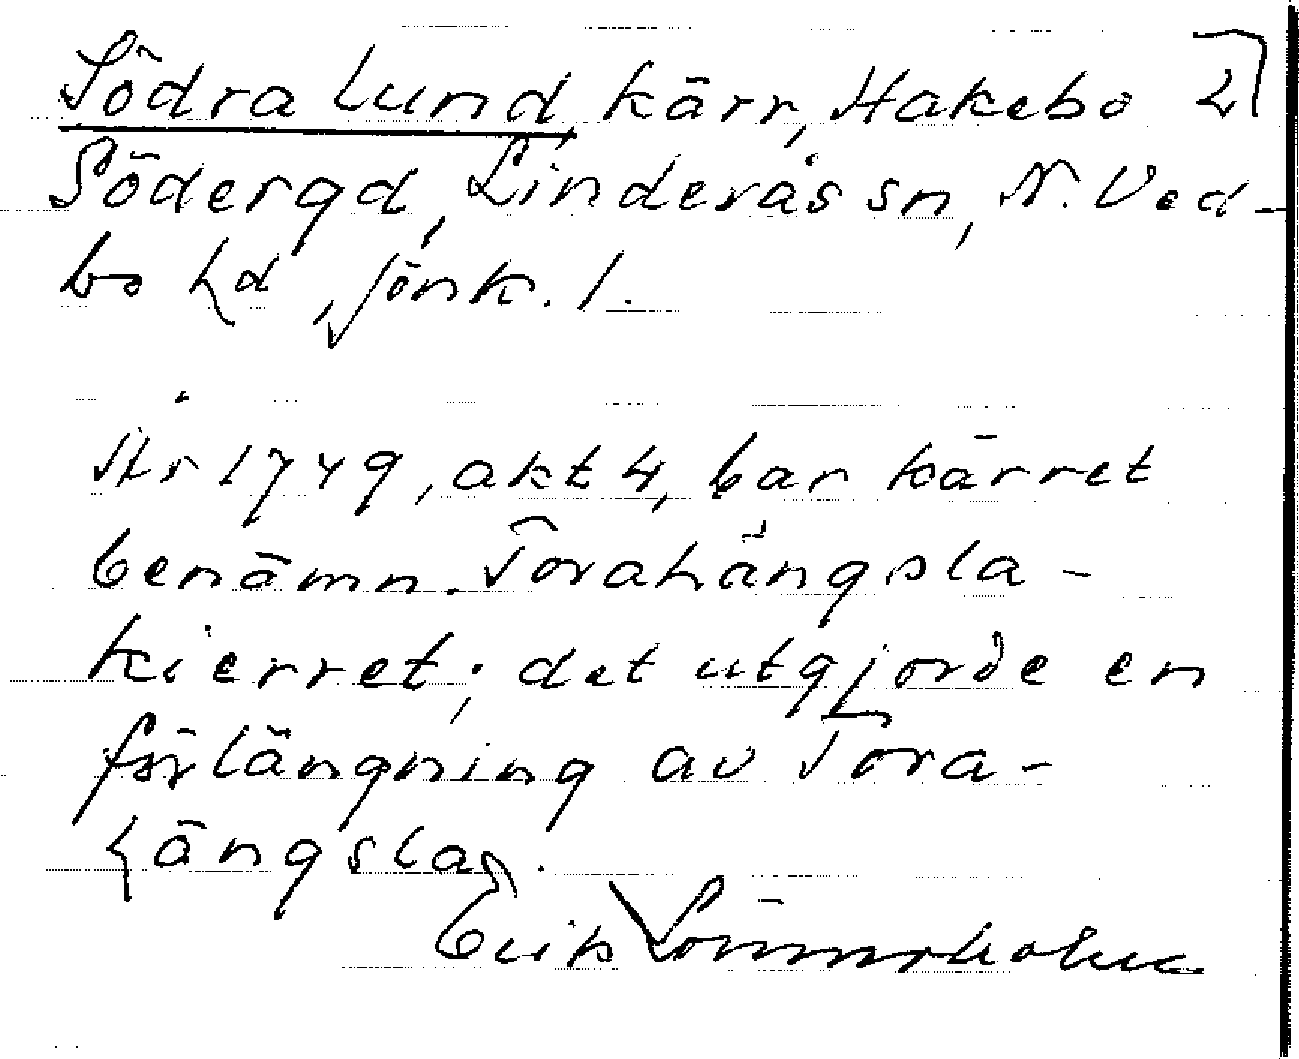 Södra lund, kärr, Hakebo 2
Södergd, Linderås sn, N. Ved-
bo hd, Jönk. l.
År 1749, akt 4, bar kärret
benämn. Torahängsla-
kierret; det utgjorde en
förlängning av Tora-
hängsla.
Erik Lönnerholm